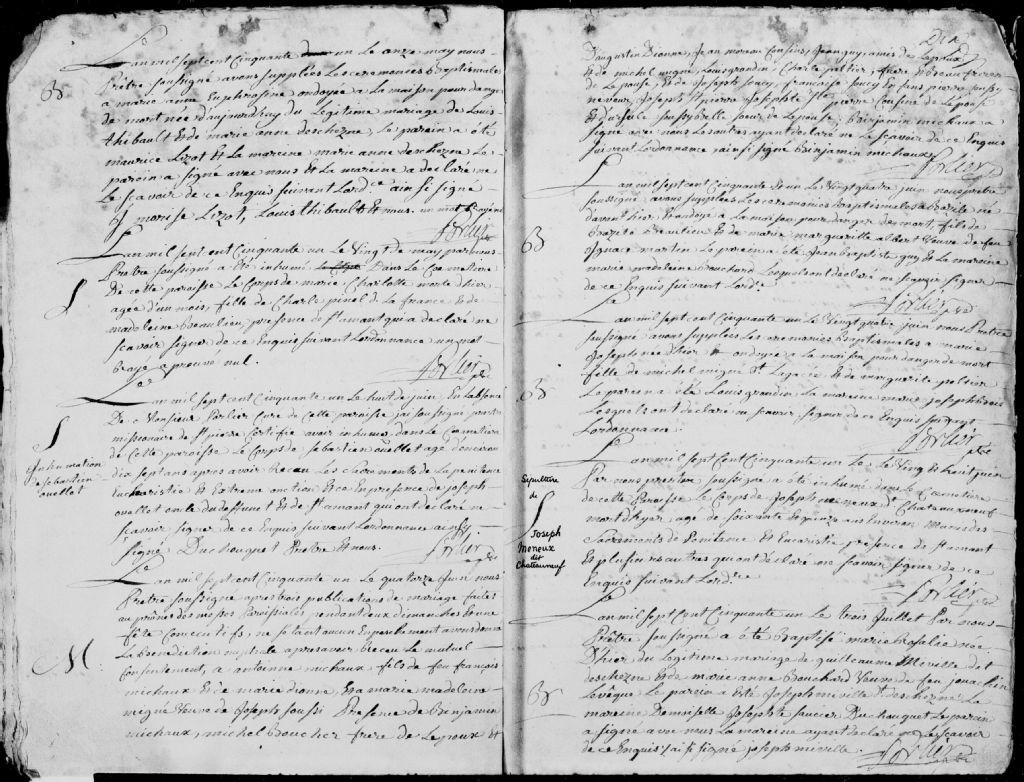 B
L'an mil sept cent cinquante un Le onze may nous
Prêtre soussigné avons supplées Les ceremonies Baptismales
a marie anne Euphrasine ondoyée a La maison pour danger
de mort née d'aujourdhuy du Légitime mariage de Louis
thibault Et de marie anne deschezne, Le parein a été
maurice Lizot Et La mareine marie anne deschezne Le
parein a signé avec nous Et La mareine a déclaré ne
Le scavoir de ce Enquis suivant Lord.ce ainsi signé
morise Lizot, Louis thibault Et nous. un mot Rayé nul
Porlier ptre
S
L'an mil sept cent Cinquante un Le Vingt de may par nous
Prêtre soussigné a été inhumé Dans Le Cimetiere
De cette paroisse Le Corps de marie Charlotte morte d'hier
agée d'un mois, fille de Charle pinel d. La france Et de
madeleine Beaulieu, presence de St amant qui a declaré ne
scavoir signer de ce Enquis suivant Lordonnance un mot
Rayé aprouvé nul.
Porlier ptre
S
inhumation
de sébastien
ouellet
L'an mil sept cent Cinquante un Le huit de juin En Labsence
De Monsieur Porlier Curé de Cette paroisse jai soussigné pretre
missionaire de St pierre Certifie avoir inhumé dans Le Cimetiere
de Cette paroisse Le Corps de sebastien ouellet agé d'environ
dix sept ans apres avoir Receu Les Sacrements de La penitence
Eucharistie Et Extreme onction Et ce En presence de joseph
ouellet oncle du defunt Et de St amant qui ont declaré ne
scavoir signer de ce Enquis suivant Lordonnance ainsy
signé Duchouquet Prêtre Et nous.
Porlier ptre
M
L'an mil sept cent Cinquante un Le quatorze Juin nous
Prêtre soussigné apres trois publications de mariage faites
au prônes des messes Paroissiales pendant deux dimanches Et une
fête Consecutifs, ne s'etant aucun Empechement avons donné
La Benediction nuptiale apres avoir Receu Le mutuel
Consentement, a antoinne michaux fils de feu françois
michaux Et de marie dionne, Et a marie madeleine
migné veuve de Joseph soussi Presence de Benjamin
michaux, michel Boucher frere de Lepoux Et
D'augustin Dionne, Jean moreau Cousins, Jean guy, amis de Lepoux
Et de michel migné, Louis grondin, Charle peltier, frere et Beau freres
De Lepouse, Et de Joseph soucy, françois soucy Enfans, pierre soussy
neveux, Joseph St pierre Josephte St pierre Cousine de Lepouse
Et dursule belle soeur de Lepouse, Benjamin michaux a
signé avec nous Les autres ayant declaré ne Le scavoir de ce Enquis
suivant Lordonnance, ainsi signé Binjamin michaux
Porlier ptre
B
L'an mil sept cent Cinquante Et un Le Vingt quatre juin nous prêtre
soussigné, avons supplées Les ceremonies Baptismales a Bazile né
davant hier Et ondoyé a La maison pour danger de mort, fils de
Bazile Beaulieu Et de marie marguerite albert Veuve de feu
Ignace martin Le parein a été Jean Baptiste guy Et La mareine
marie madeleine Bouchard Lesquels ont declaré ne scavoir signer
de ce Enquis suivant Lord.ce
Porlier ptre
B
L'an mil sept cent cinquante un Le Vingt quatre juin nous Prêtre
soussigné avons supplées Les ceremonies Baptismales a marie
Joseph née d'hier Et ondoyée a La maison pour danger de mort
fille de michel migné dt Legacé Et de marguerite peltier
Le parein a été Louis grondin La mareine marie joseph
Lesquels ont declaré ne scavoir signer de ce Enquis suivant
Lordonnance.
Porlier ptre
Sépulture
de
S
Joseph
Meneux
dit
Chateauneuf
L'an mil sept cent Cinquante un Le Vingt Et huit juin
Par nous prestre soussigné a été inhumé dans Le Cimetiere
de cette Paroisse Le Corps de Joseph meneux d. Chateauneuf
mort d'hyer, agé de soixante Et quinze ans Environ muni des
Sacrements de Penitence Et Eucaristie présence de St amant
Et plusieurs autres qui ont declaré ne scavoir signer de ce
Enquis suivant Lord.ce
Porlier ptre
B
L'an mil sept Cent Cinquante un Le trois Juillet Par nous
Prêtre soussigné a été Baptisé marie Rosalie née
D'hier du Légitime mariage de guilleaume Miville dit
deschezne Et de marie anne Bouchard Veuve de feu joachin
Lavêque Le parein a Eté Joseph miville dt deschezne La
mareine Demoiselle Josephte saucier Duchouquet Le parein
a signé avec nous La mareine ayant declaré ne Le scavoir
de ce Enquis ainsi signé joseph miville.
Porlier ptre